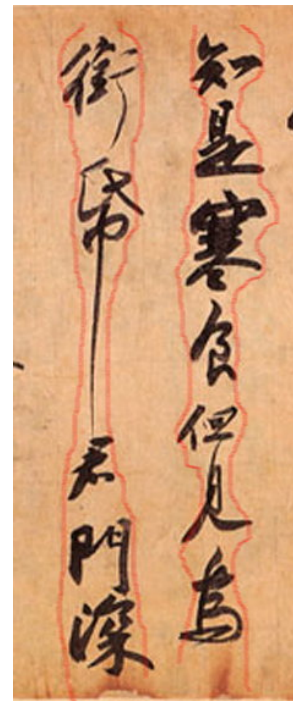 知是寒食但見烏
銜帋君門深